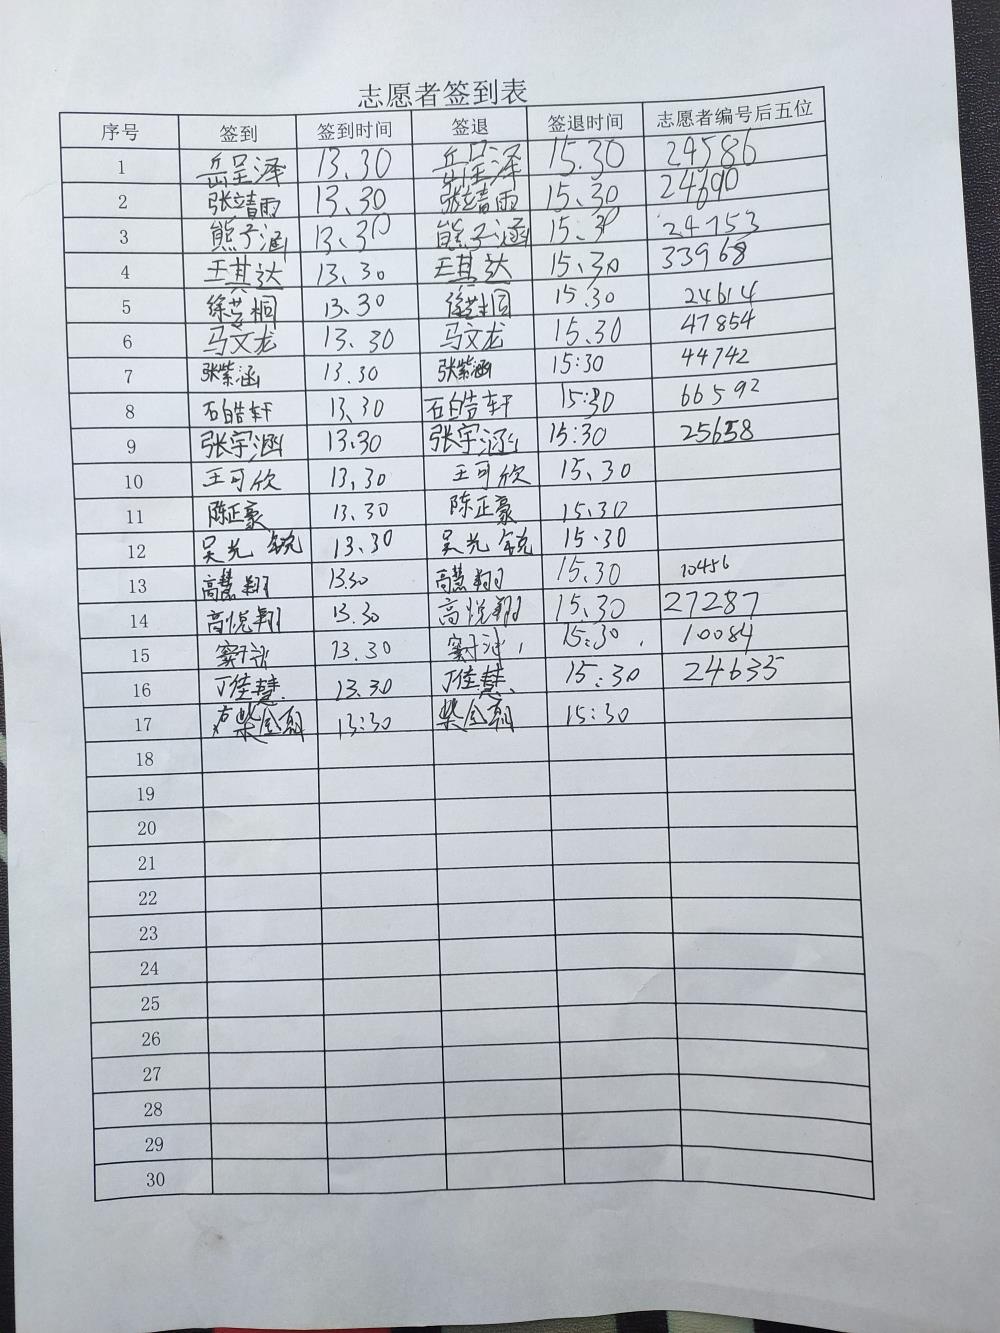 志愿者签到表
序号 签到 签到时间 签退 签退时间 志愿者编号后五位
1 岳呈泽 13.30 岳呈泽 15.30 24586
2 张靖雨 13、30 张靖雨 15、30 24690
3 熊子涵 13、30 熊子涵 15、30 24753
4 王其达 13、30 王其达 15、30 33968
5 徐芸桐 13.30 15.30 24614
6 马文龙 13.30 马文龙 15.30 47854
7 张紫涵 13.30 张紫涵 15:30 44742
8 石皓轩 13.30 石皓轩 15:30 66592
9 张宇涵 13.30 张宇涵 15:30 25658
10 王可欣 13、30 王可欣 15、30
11 陈正豪 13.30 陈正豪 15.30
12 吴光锐 13.30 吴光锐 15.30
13 高慧翔 13.30 高慧翔 15.30 10456
14 高悦翔 13.30 高悦翔 15.30 27287
15 13.30 15:30 10084
16 丁佳慧 13.30 丁佳慧 15:30 24635
17 柴金朝 13:30 柴金朝 15:30
18
19
20
21
22
23
24
25
26
27
28
29
30